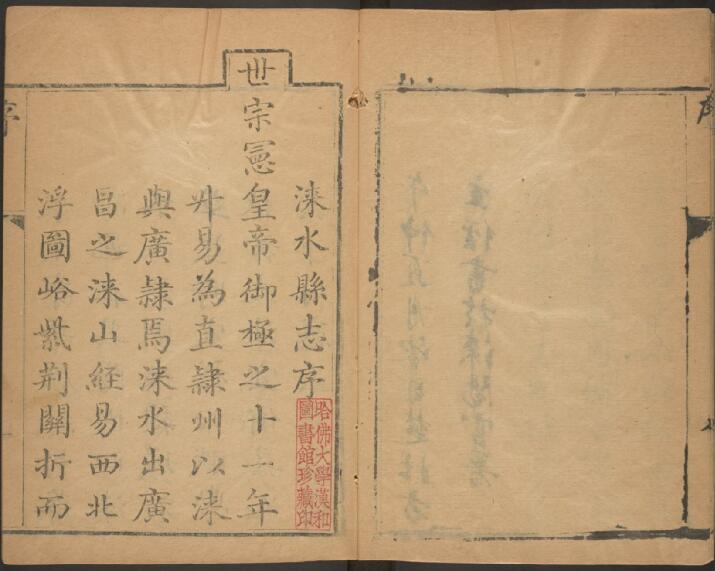 涞水縣志序
世宗憲皇帝御極之十一年
升易為直隸州以涞
與廣隸焉涞水出廣
昌之涞山經易西北
浮圖峪紫荆關折而
哈佛大學漢和
圖書館珍藏印
序